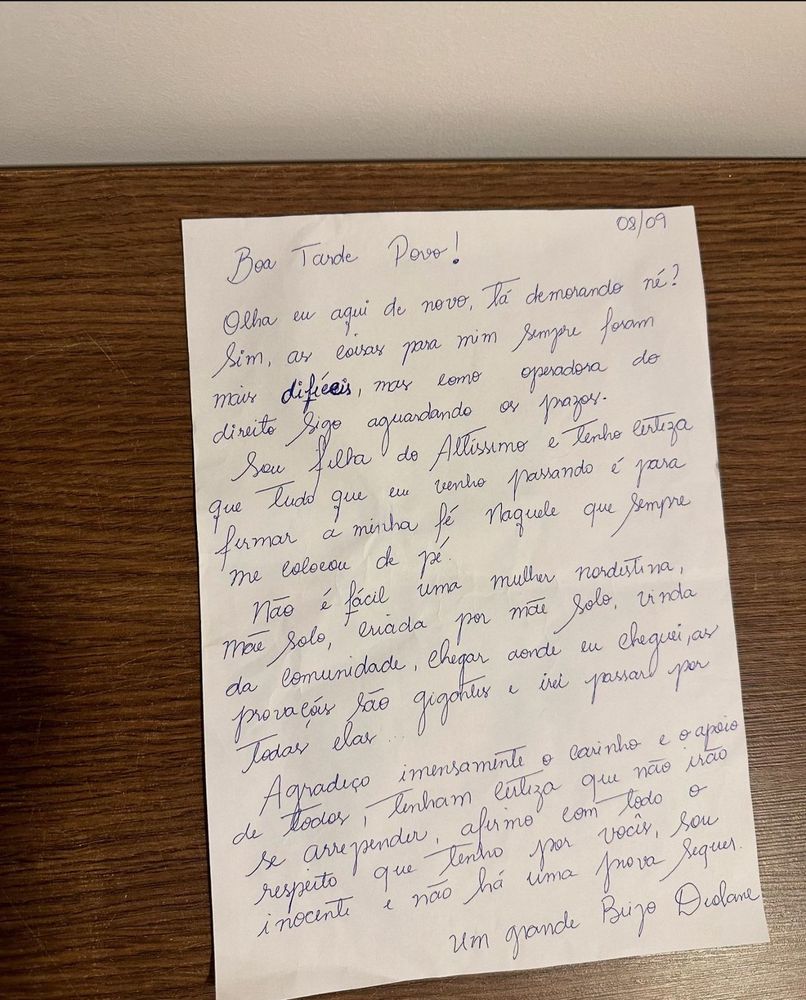 08/09
Boa Tarde Povo!
Olha eu aqui de novo, Tá demorando né?
Sim, as coisas para mim sempre foram
mais difíceis, mas como operadora do
direito sigo aguardando os prazos.
Sou filha do Altíssimo e tenho certeza
que tudo que eu venho passando é para
firmar a minha fé Naquele que sempre
me colocou de pé.
Não é fácil uma mulher nordestina,
mãe solo, criada por mãe solo, vinda
da comunidade, chegar aonde eu cheguei, as
provações são gigantes e irei passar por
todas elas...
Agradeço imensamente o carinho e o apoio
de todos, tenham certeza que não irão
se arrepender, afirmo com todo o
respeito que tenho por vocês, sou
inocente e não há uma prova sequer.
Um grande Beijo Deolane